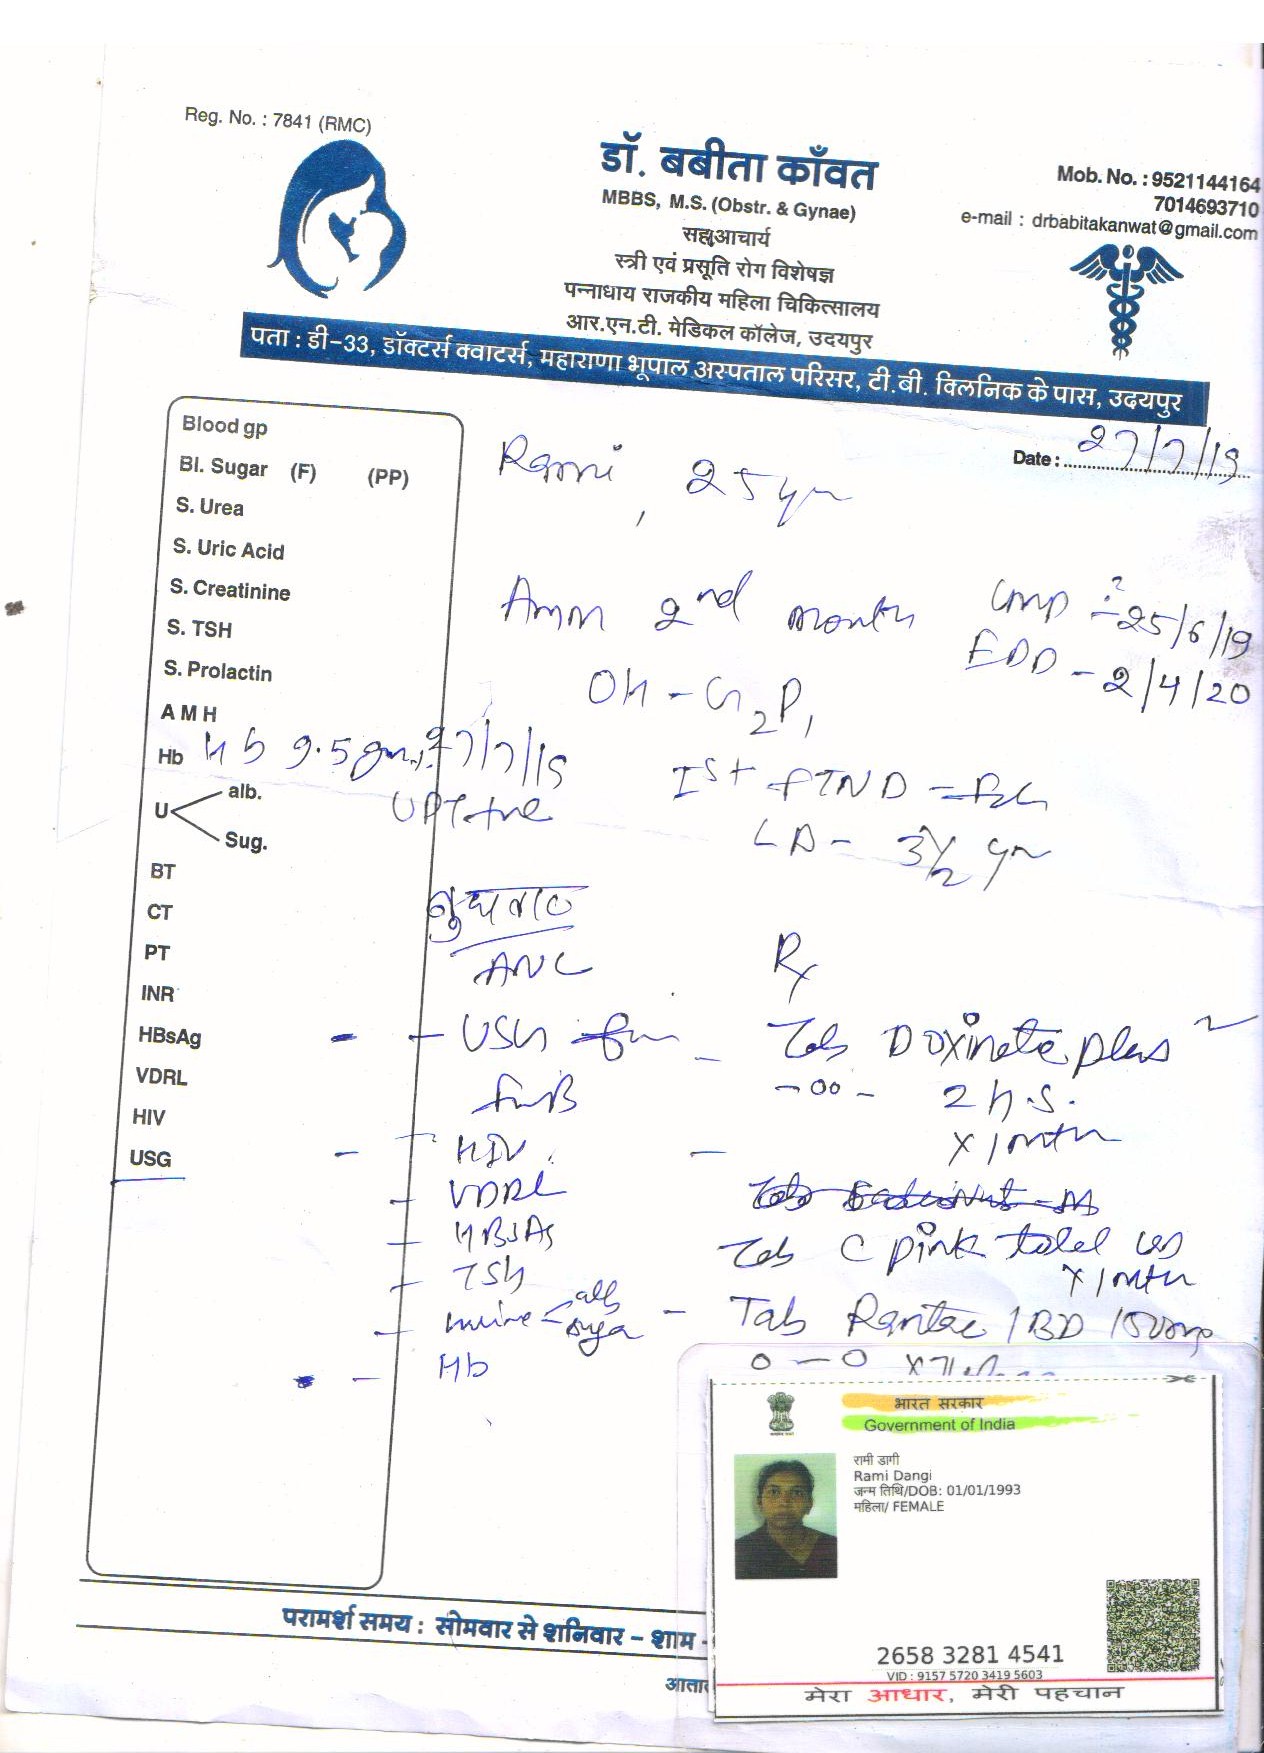 Reg. No. : 7841 (RMC)
डॉ. बबीता काँवत
MBBS, M.S. (Obstr. & Gynae)
सह आचार्य
स्त्री एवं प्रसूति रोग विशेषज्ञ
पन्नाधाय राजकीय महिला चिकित्सालय
आर.एन.टी. मेडिकल कॉलेज, उदयपुर
Mob. No. : 9521144164
7014693710
e-mail : drbabitakanwat@gmail.com
पता : डी-33, डॉक्टर्स क्वाटर्स, महाराणा भूपाल अस्पताल परिसर, टी.बी. क्लिनिक के पास, उदयपुर
Date : 27/7/19
Rami, 25 yr
Amm 2nd month
Lmp :- ? 25/6/19
EDD - 2/4/20
OH - G2P1
Ist FTND
LD - 3 1/2 yr
Blood gp
Bl. Sugar (F) (PP)
S. Urea
S. Uric Acid
S. Creatinine
S. TSH
S. Prolactin
A M H
Hb Hb 9.5 gm, 27/7/19
UPT +ve
U alb.
Sug.
BT
CT
PT
INR
HBsAg
VDRL
HIV
USG
ANC
- USG
- HIV
- VDRL
- HBsAg
- TSH
- urine alb
suga
- Hb
Rx
- Tab Doxinate plus
-oo- 2 h.s.
x 1 mth
Tab C pink total
x 1 mth
- Tab Rantac 1 BD 150mg
0-0
भारत सरकार
Government of India
रामी डागी
Rami Dangi
जन्म तिथि/DOB: 01/01/1993
महिला/ FEMALE
2658 3281 4541
VID : 9157 5720 3419 5603
मेरा आधार, मेरी पहचान
परामर्श समय : सोमवार से शनिवार - शाम -